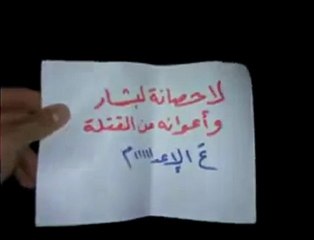 لا حصانة لبشار
وأعوانه من القتلة
ع الإعداااااام